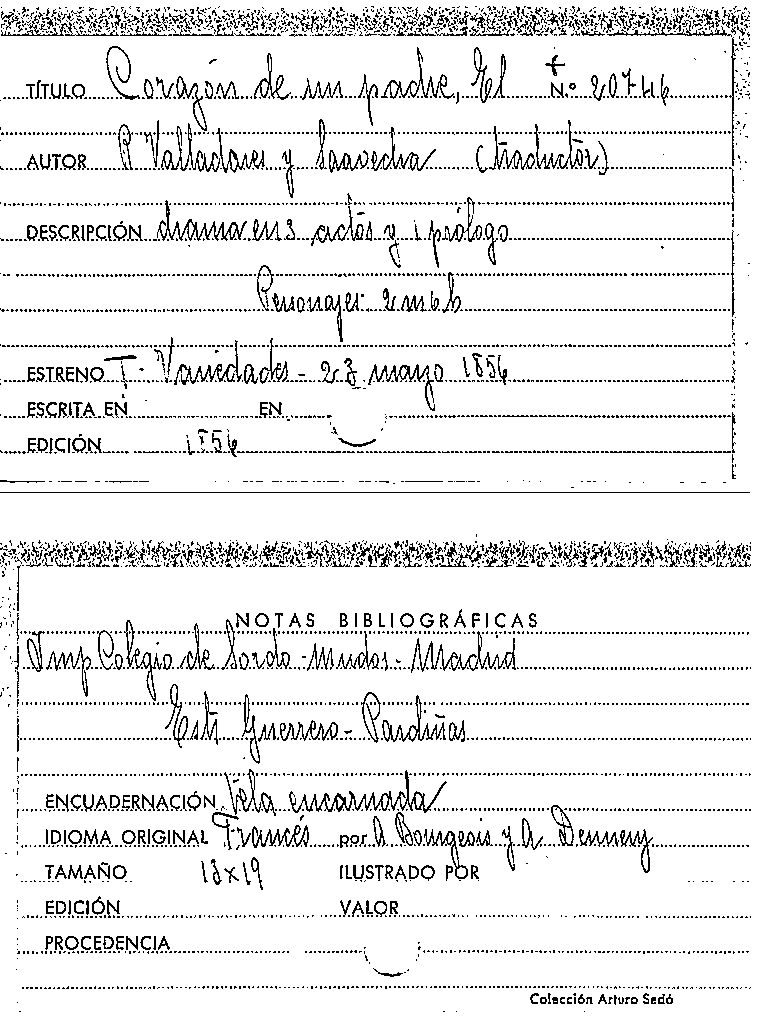 TÍTULO Corazón de un padre, El Nº 20746
AUTOR R Valladares y Saavedra (traductor)
DESCRIPCIÓN drama en 3 actos y 1 prólogo
Personajes 2 m 6 h
ESTRENO T. Variedades - 23 mayo 1856
ESCRITA EN EN
EDICIÓN 1856
NOTAS BIBLIOGRÁFICAS
Imp Colegio de Sordo-Mudos - Madrid
Estr Guerrero - Pardiñas
ENCUADERNACIÓN tela encarnada
IDIOMA ORIGINAL Francés por A Bourgeois y A. Dennery
TAMAÑO 13x19 ILUSTRADO POR
EDICIÓN VALOR
PROCEDENCIA
Colección Arturo Sedó